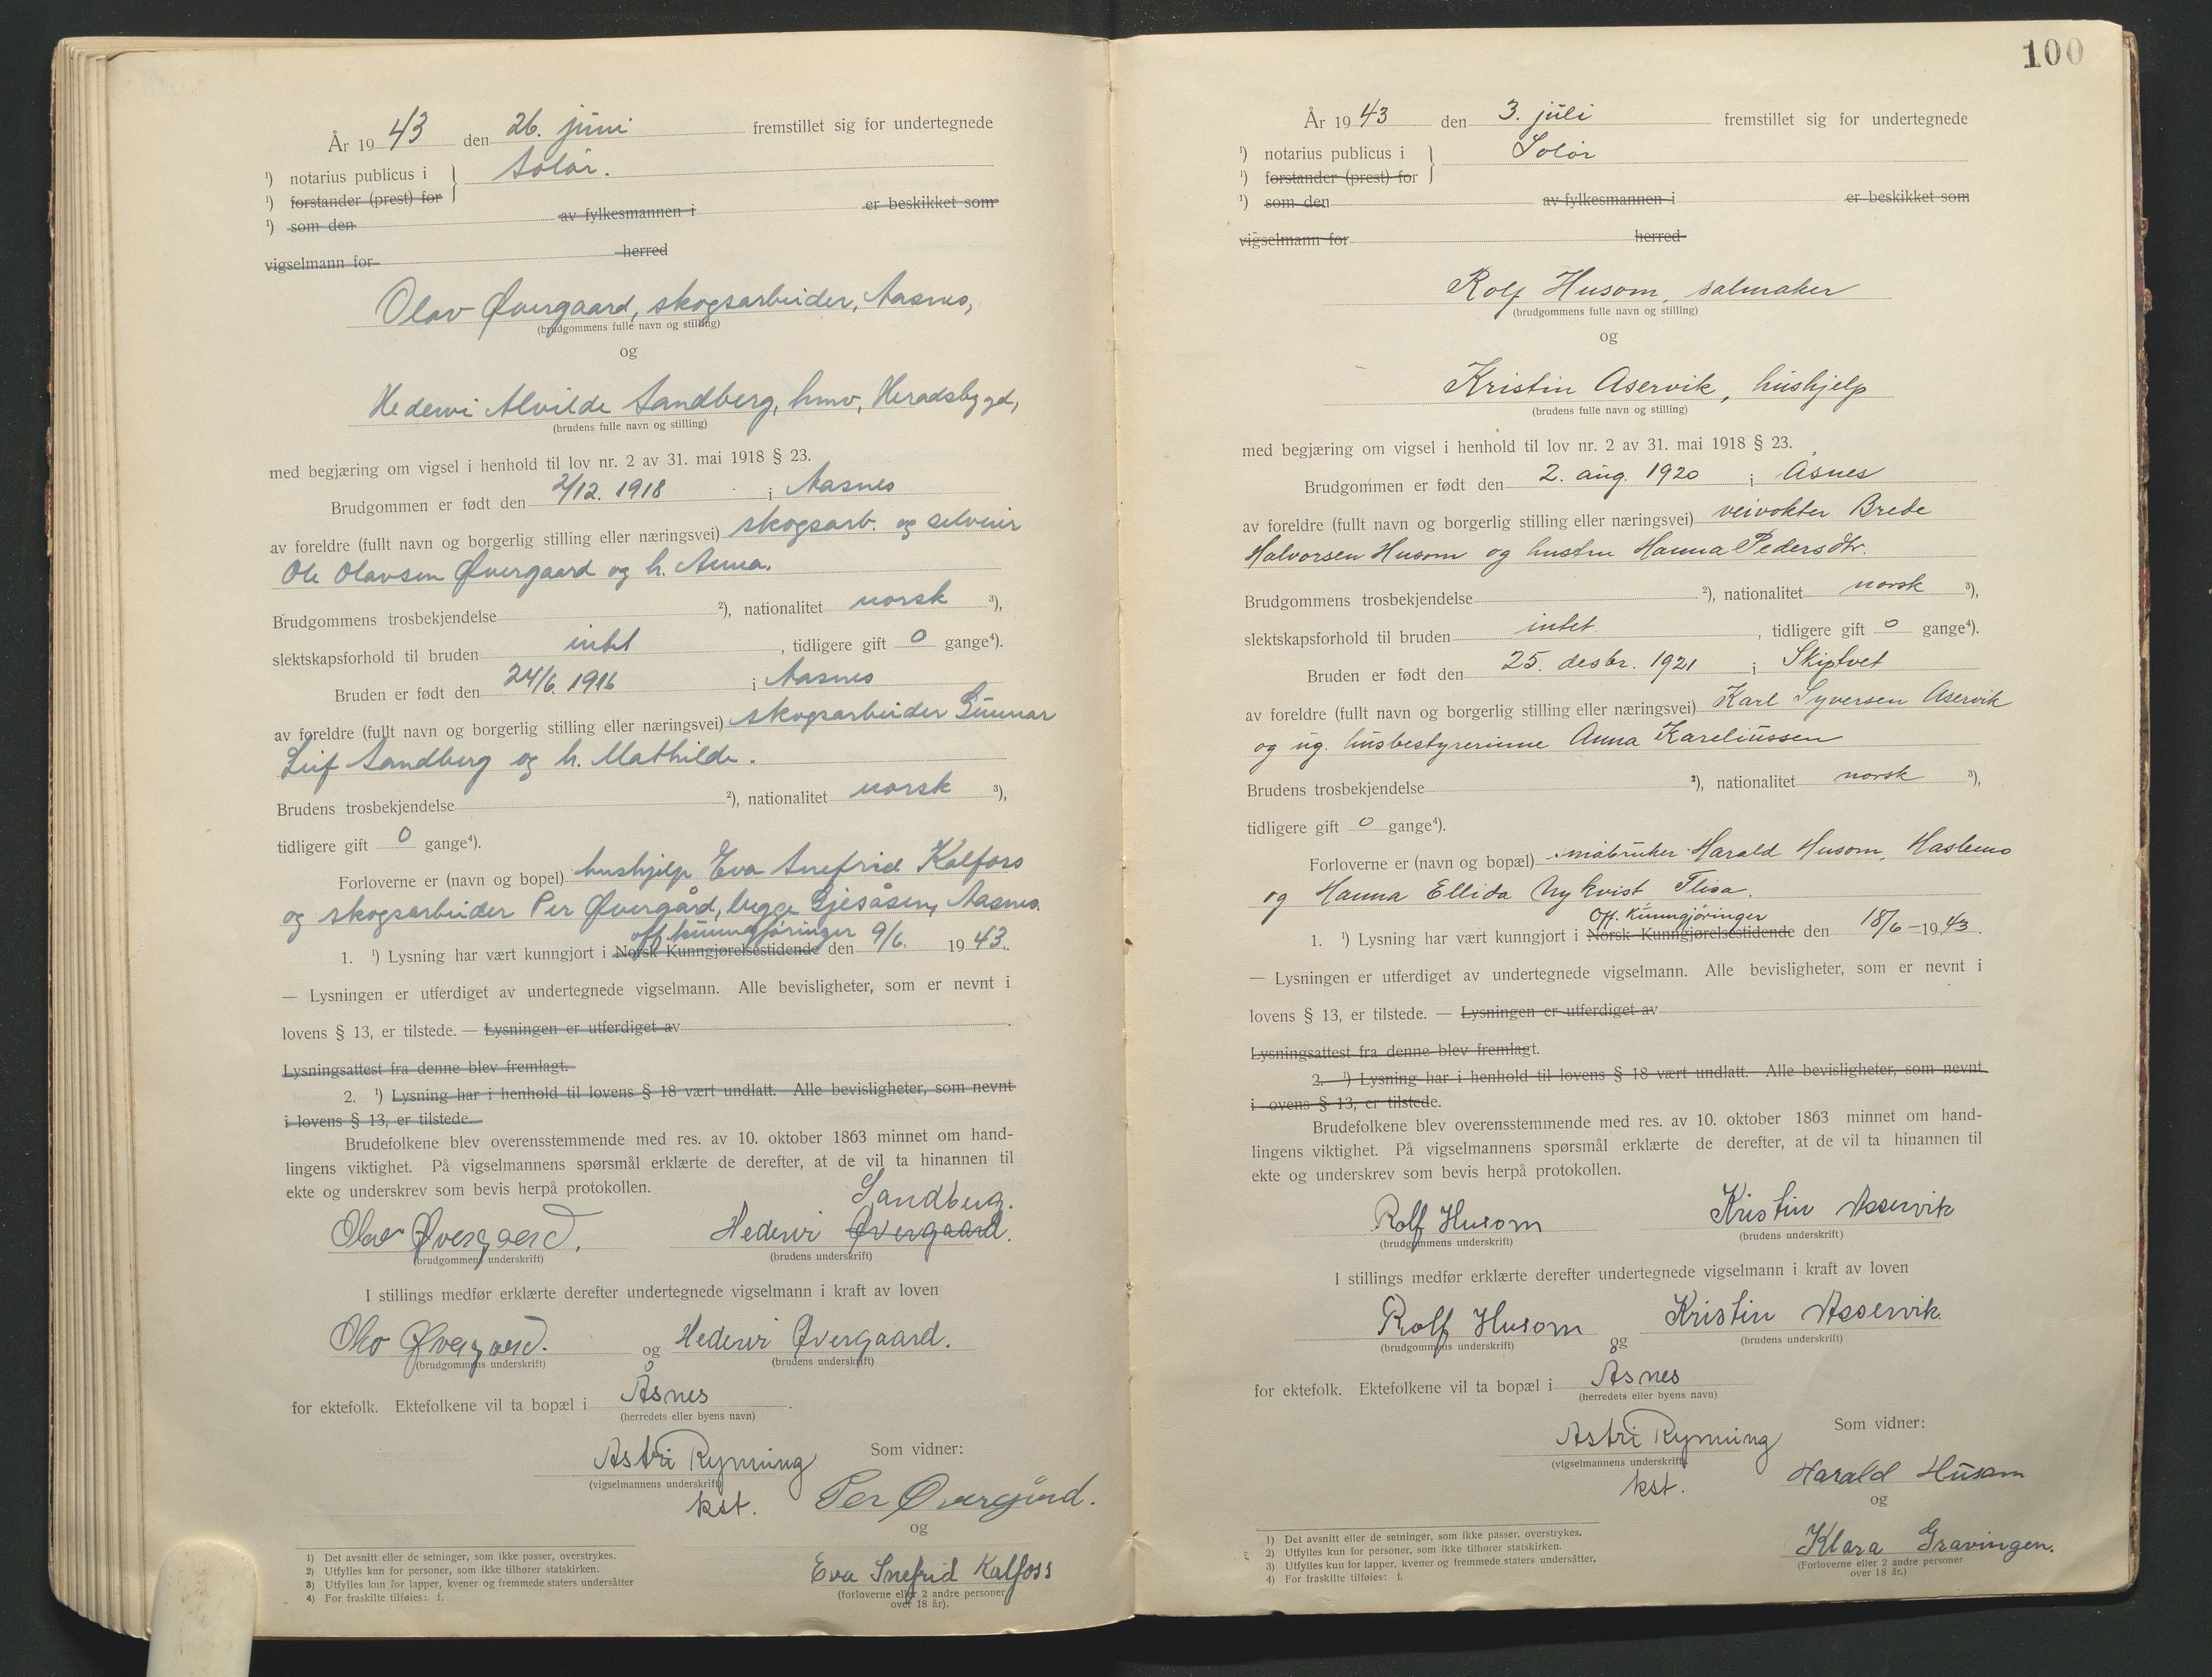 År 1943 den 26. juni fremstillet sig for undertegnede
¹) notarius publicus i } Solør.
¹) forstander (prest) for
¹) som den av fylkesmannen i er beskikket som
vigselmann for herred
Olav Øvergaard, skogsarbeider, Aasnes,
(brudgommens fulle navn og stilling)
og
Hedervi Alvilde Sandberg, hmv, Heradsbygd,
(brudens fulle navn og stilling)
med begjæring om vigsel i henhold til lov nr. 2 av 31. mai 1918 § 23.
Brudgommen er født den 2/12. 1918 i Aasnes
av foreldre (fullt navn og borgerlig stilling eller næringsvei) skogsarb. og selveier
Ole Olavsen Øvergaard og h. Anna.
Brudgommens trosbekjendelse ²), nationalitet norsk ³),
slektskapsforhold til bruden intet, tidligere gift 0 gange⁴).
Bruden er født den 24/6. 1916 i Aasnes
av foreldre (fullt navn og borgerlig stilling eller næringsvei) skogsarbeider Gunnar
Leif Sandberg og h. Mathilde.
Brudens trosbekjendelse ²), nationalitet norsk ³),
tidligere gift 0 gange⁴).
Forloverne er (navn og bopel) hushjelp Eva Snefrid Kalfoss
og skogsarbeider Per Øvergård, begge Gjesåsen, Aasnes.
off. kunngjøringer
1. ¹) Lysning har vært kunngjort i Norsk Kunngjørelsestidende den 9/6. 1943.
— Lysningen er utferdiget av undertegnede vigselmann. Alle bevisligheter, som er nevnt i
lovens § 13, er tilstede. — Lysningen er utferdiget av
Lysningsattest fra denne blev fremlagt.
2. ¹) Lysning har i henhold til lovens § 18 vært undlatt. Alle bevisligheter, som nevnt
i lovens § 13, er tilstede.
Brudefolkene blev overensstemmende med res. av 10. oktober 1863 minnet om hand-
lingens viktighet. På vigselmannens spørsmål erklærte de derefter, at de vil ta hinannen til
ekte og underskrev som bevis herpå protokollen.
Sandberg.
Olav Øvergaard. Hedervi Øvergaard.
(brudgommens underskrift) (brudens underskrift)
I stillings medfør erklærte derefter undertegnede vigselmann i kraft av loven
Olav Øvergaard. og Hedervi Øvergaard.
(brudgommens underskrift) (brudens underskrift)
for ektefolk. Ektefolkene vil ta bopæl i Åsnes
(herredets eller byens navn)
Som vidner:
Astri Rynning
(vigselmannens underskrift)
kst. Per Øvergård.
og
Eva Snefrid Kalfoss
(forloverne eller 2 andre personer
over 18 år).
1) Det avsnitt eller de setninger, som ikke passer, overstrykes.
2) Utfylles kun for personer, som ikke tilhører statskirken.
3) Utfylles kun for lapper, kvener og fremmede staters undersåtter
4) For fraskilte tilføies: f.
100
År 1943 den 3. juli fremstillet sig for undertegnede
¹) notarius publicus i } Solør
¹) forstander (prest) for
¹) som den av fylkesmannen i er beskikket som
vigselmann for herred
Rolf Husom, salmaker
(brudgommens fulle navn og stilling)
og
Kristin Aservik, hushjelp
(brudens fulle navn og stilling)
med begjæring om vigsel i henhold til lov nr. 2 av 31. mai 1918 § 23.
Brudgommen er født den 2. aug. 1920 i Åsnes
av foreldre (fullt navn og borgerlig stilling eller næringsvei) veivokter Brede
Halvorsen Husom og hustru Hanna Pedersdtr.
Brudgommens trosbekjendelse ²), nationalitet norsk ³),
slektskapsforhold til bruden intet, tidligere gift 0 gange⁴).
Bruden er født den 25. desbr. 1921 i Skiptvet
av foreldre (fullt navn og borgerlig stilling eller næringsvei) Karl Syversen Aservik
og ug. husbestyrerinne Anna Kareliussen
Brudens trosbekjendelse ²), nationalitet norsk ³),
tidligere gift 0 gange⁴).
Forloverne er (navn og bopæl) småbruker Harald Husom, Haslemo
og Hanna Ellida Nykvist Flisa.
Off. Kunngjøringer
1. ¹) Lysning har vært kunngjort i Norsk Kunngjørelsestidende den 18/6 - 1943.
— Lysningen er utferdiget av undertegnede vigselmann. Alle bevisligheter, som er nevnt i
lovens § 13, er tilstede. — Lysningen er utferdiget av
Lysningsattest fra denne blev fremlagt.
2. ¹) Lysning har i henhold til lovens § 18 vært undlatt. Alle bevisligheter, som nevnt
i ovens § 13, er tilstede.
Brudefolkene blev overensstemmende med res. av 10. oktober 1863 minnet om hand-
lingens viktighet. På vigselmannens spørsmål erklærte de derefter, at de vil ta hinannen til
ekte og underskrev som bevis herpå protokollen.
Rolf Husom Kristin Asservik
(brudgommens underskrift) (brudens underskrift)
I stillings medfør erklærte derefter undertegnede vigselmann i kraft av loven
Rolf Husom og Kristin Asservik.
(brudgommens underskrift) (brudens underskrift)
for ektefolk. Ektefolkene vil ta bopæl i Åsnes
(herredets eller byens navn)
Som vidner:
Astri Rynning
(vigselmannens underskrift)
kst. Harald Husom
og
Klara Gravingen.
(Forloverne eller 2 andre personer
over 18 år.)
1) Det avsnitt eller de setninger, som ikke passer, overstrykes.
2) Utfylles kun for personer, som ikke tilhører statskirken.
3) Utfylles kun for lapper, kvener og fremmede staters undersåtter.
4) For fraskilte tilføies: f.